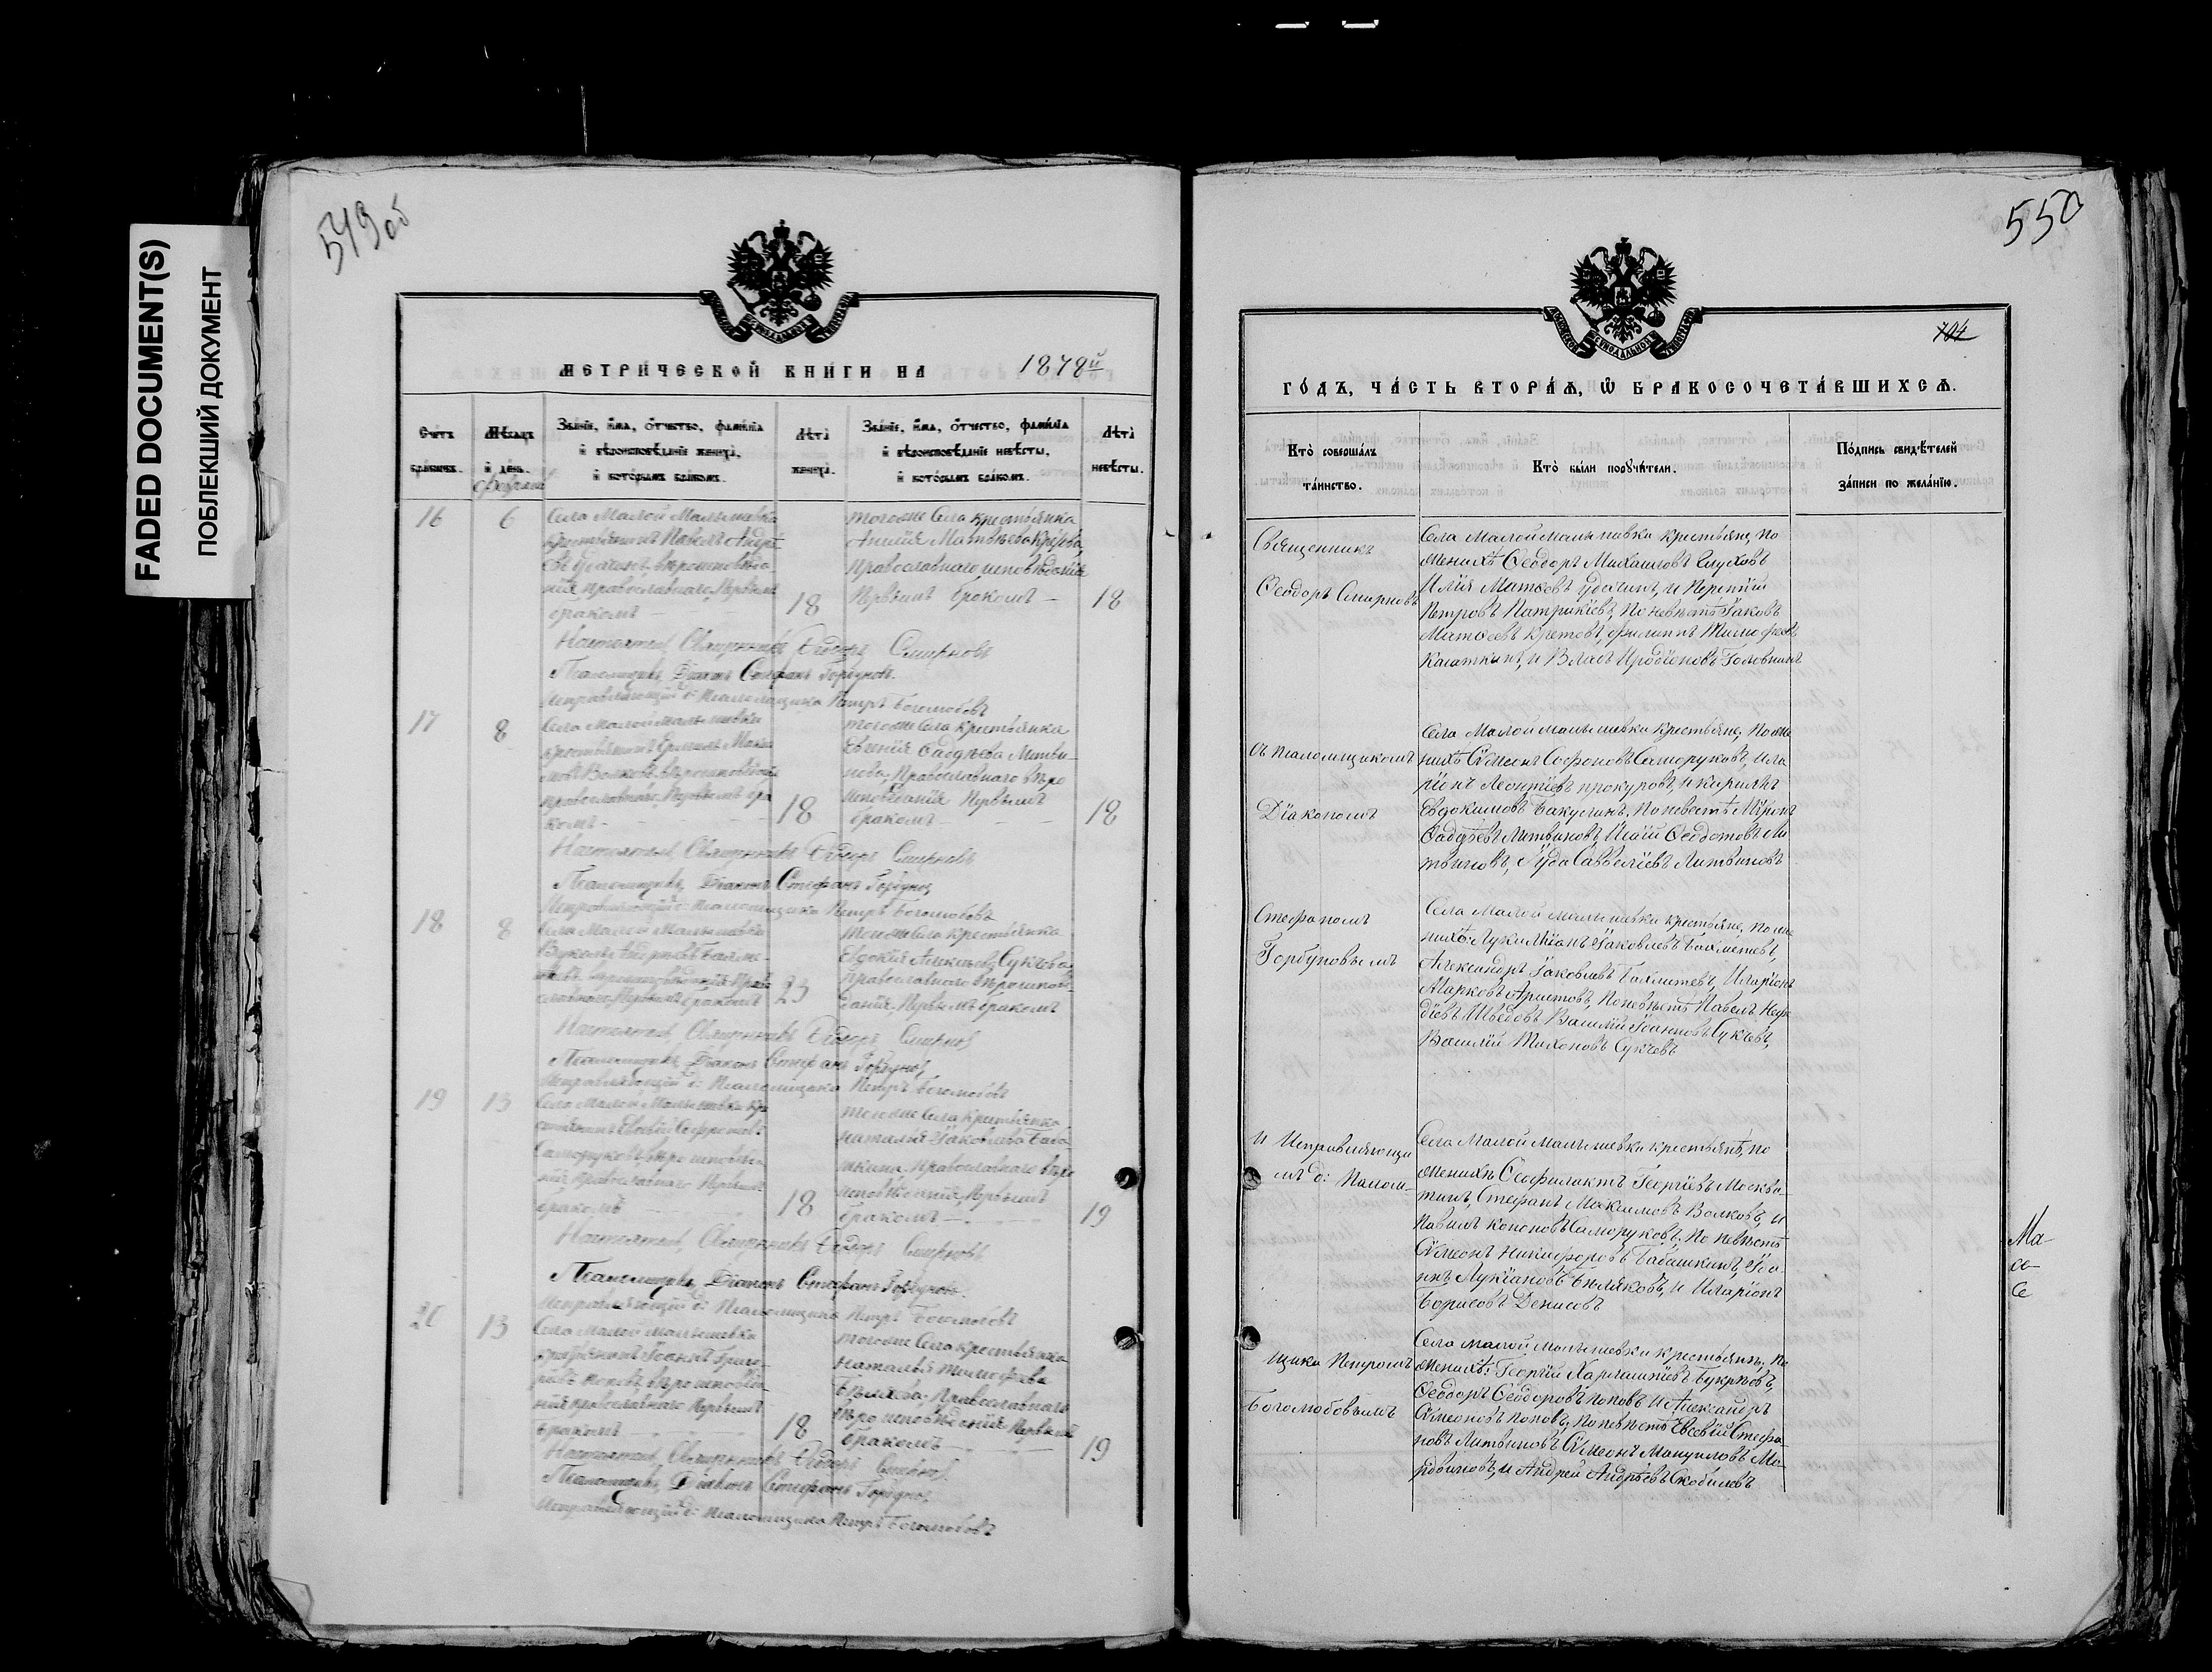 FADED DOCUMENT(S)
ПОБЛЕКШИЙ ДОКУМЕНТ
549 об
МЕТРИЧЕСКОЙ КНИГИ НА 1878й
Счетъ браковъ.
Мѣсяцъ и день.
Званіе, имя, отчество, фамилія
и вѣроисповѣданіе жениха,
и которымъ бракомъ.
Лѣта
жениха.
Званіе, имя, отчество, фамилія
и вѣроисповѣданіе невѣсты,
и которымъ бракомъ.
Лѣта
невѣсты.
февраля
16
6
Села Малой Малышевки
крестьянинъ Павелъ Андре
евъ вѣроисповѣда
нія православнаго, первымъ
бракомъ
18
тогоже Села крестьянка
Матвѣева
православнаго исповѣданія
Первымъ бракомъ —
18
Настоятель, Священникъ Ѳеодоръ Смирновъ
Псаломщикъ, Діаконъ Стефанъ Горбуновъ.
Исправляющій д: Псаломщика Петръ Боголюбовъ
17
8
Села Малой Малышевки
крестьянинъ Макси
мовъ Волковъ, вѣроисповѣданія
православнаго, Первымъ бра
комъ —
18
тогоже Села крестьянка
Евгенія Ѳаддѣева Литви
нова, Православнаго вѣро
исповѣданія Первымъ
бракомъ —
18
Настоятель, Священникъ Ѳеодоръ Смирновъ
Псаломщикъ, Діаконъ Стефанъ Горбуновъ
Исправляющій д: Псаломщика Петръ Боголюбовъ
18
8
Села Малой Малышевки
Бахме
тевъ, вѣроисповѣданія Право
славнаго, Первымъ бракомъ
23
тогоже Села крестьянка
Евдокія Алексѣева Сукчева
православнаго вѣроисповѣ
данія, Первымъ бракомъ
Настоятель, Священникъ Ѳеодоръ Смирновъ
Псаломщикъ, Діаконъ Стефанъ Горбуновъ
Исправляющій д: Псаломщика Петръ Боголюбовъ
19
13
Села Малой Малышевки кре
стьянинъ Софроновъ
Саморуковъ, вѣроисповѣда
нія православнаго Первымъ
бракомъ
18
тогоже Села крестьянка
Наталія Іаковлева Баба
шкина, православнаго вѣро
исповѣданія, Первымъ
бракомъ —
19
Настоятель, Священникъ Ѳеодоръ Смирновъ
Псаломщикъ, Діаконъ Стефанъ Горбуновъ.
Исправляющій д: Псаломщика Петръ Боголюбовъ
20
13
Села Малой Малышевки
крестьянинъ Іоаннъ Григо
рьевъ Поповъ, вѣроисповѣда
нія православнаго Первымъ
бракомъ
18
тогоже Села крестьянка
Наталья Тимоѳѣева
Бѣлякова, Православнаго
вѣроисповѣданія Первымъ
бракомъ —
19
Настоятель, Священникъ Ѳеодоръ Смирновъ
Псаломщикъ, Діаконъ Стефанъ Горбуновъ
Исправляющій д: Псаломщика Петръ Боголюбовъ
550
704
ГОДЪ, ЧАСТЬ ВТОРАЯ, Ѡ БРАКОСОЧЕТАВШИХСЯ.
Кто совершалъ
таинство.
Кто были поручители.
Подпись свидѣтелей
записи по желанію.
Священникъ
Ѳеодоръ Смирновъ
Села Малой малышевки крестьяне, по
женихѣ Ѳеодоръ Михаиловъ Глуховъ
Илія Матвеевъ Удачинъ, и Терентій
Петровъ Патрикіевъ, По невѣстѣ Іаковъ
Матвеевъ Кретовъ, Филиппъ Тимофеевъ
Касаткинъ, и Власъ Иродіоновъ Головнинъ
съ псаломщикомъ
Діакономъ
Села Малой малышевки крестьяне, По же
нихѣ Сѷмеонъ Софоновъ Саморуковъ, Ила
ріонъ Леонтіевъ прокуровъ, и Киріякъ
Евдокимовъ Бакулинъ, По невестѣ Міронъ
Ѳаддѣевъ Литвиновъ Ѳеодотовъ Ли
твиновъ, Іуда Савелліевъ Литвиновъ
Стефаномъ
Горбуновымъ
Села Малой малышевки крестьяне, по же
нихѣ: Лукилліанъ Іаковлевъ Бахметевъ,
Александръ Іаковлевъ Бахметевъ, Иларіонъ
Марковъ Аристовъ, По невѣстѣ Павелъ
Шведовъ Василій Іоанновъ Сукчевъ,
Василій Тихоновъ Сукчевъ
и Исправляющи
мъ д: Псалом-
Села Малой Малышевки крестьянѣ, по
женихѣ Ѳеофилактъ Георгіевъ Москва
тинъ, Стефанъ Максимовъ Волковъ, и
Павелъ Кононовъ Саморуковъ, По невѣстѣ
Сѷмеонъ Никифоровъ Бабашкинъ, Іоа
ннъ Лукіановъ Бѣляковъ, и Иларіонъ
Борисовъ Денисовъ
щика Петромъ
Боголюбовымъ
Села малой малышевки крестьянѣ, По
женихѣ: Георгій Харлампіевъ
Ѳеодоръ Ѳеодоровъ Поповъ и Александръ
Сѷмеоновъ Поповъ, По невѣстѣ Евсевій Стефа
новъ Литвиновъ Сѷмеонъ Мануиловъ Мо
рдвиновъ, и Андрей Андрѣевъ Скобелевъ